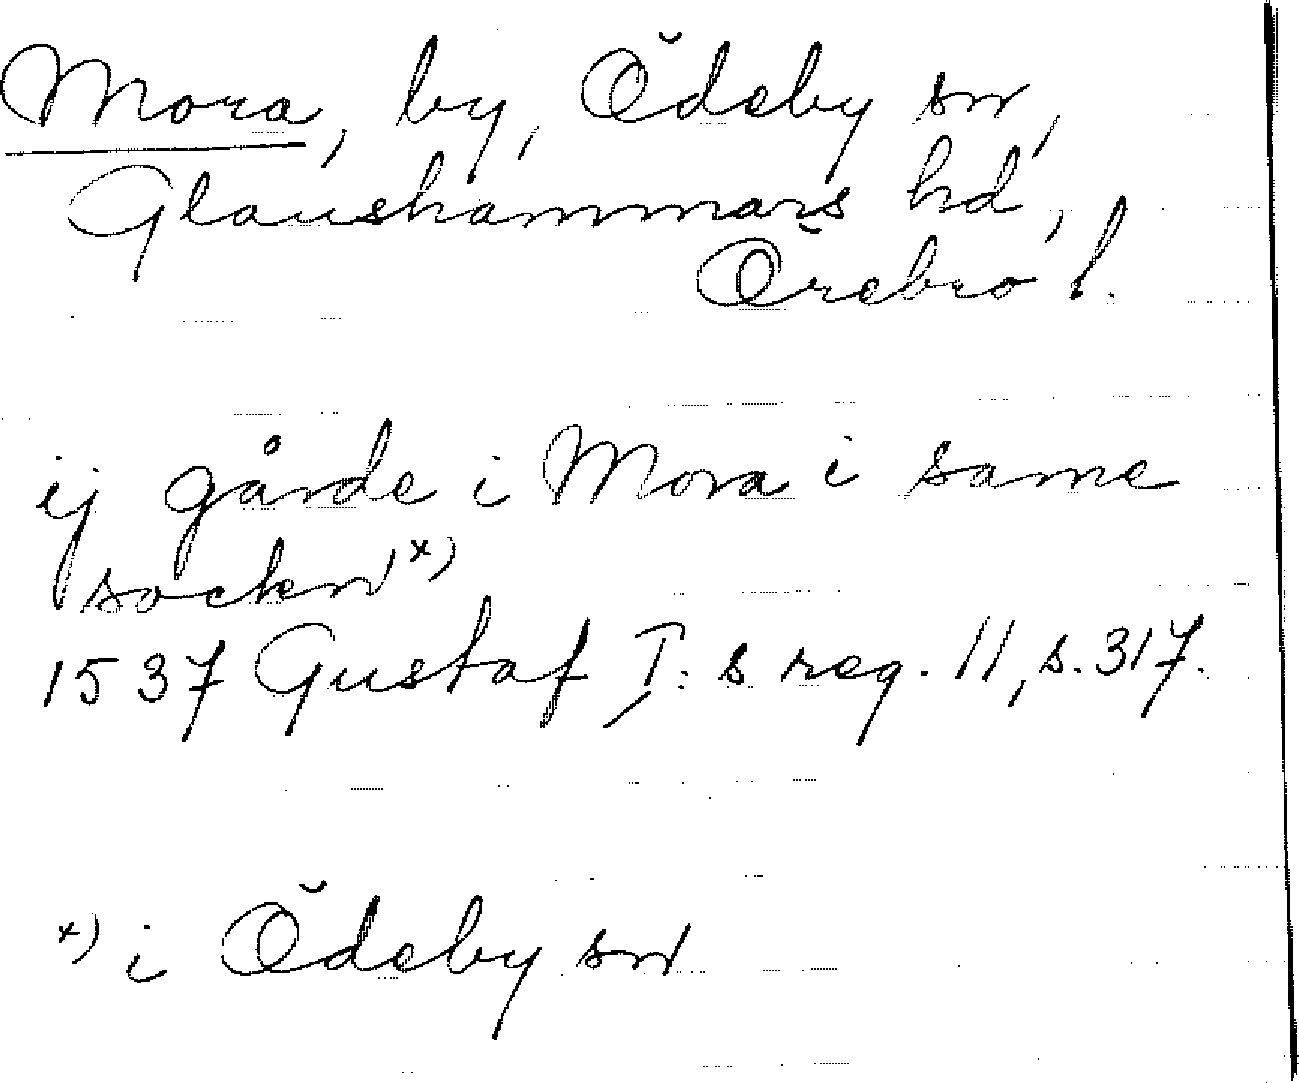 Mora, by, Ödeby sn,
Glanshammars hd,
Örebro l.
ij gårde i Mora i same
sockn x)
1537 Gustaf I:s reg. 11, s. 317.
x) i Ödeby sn